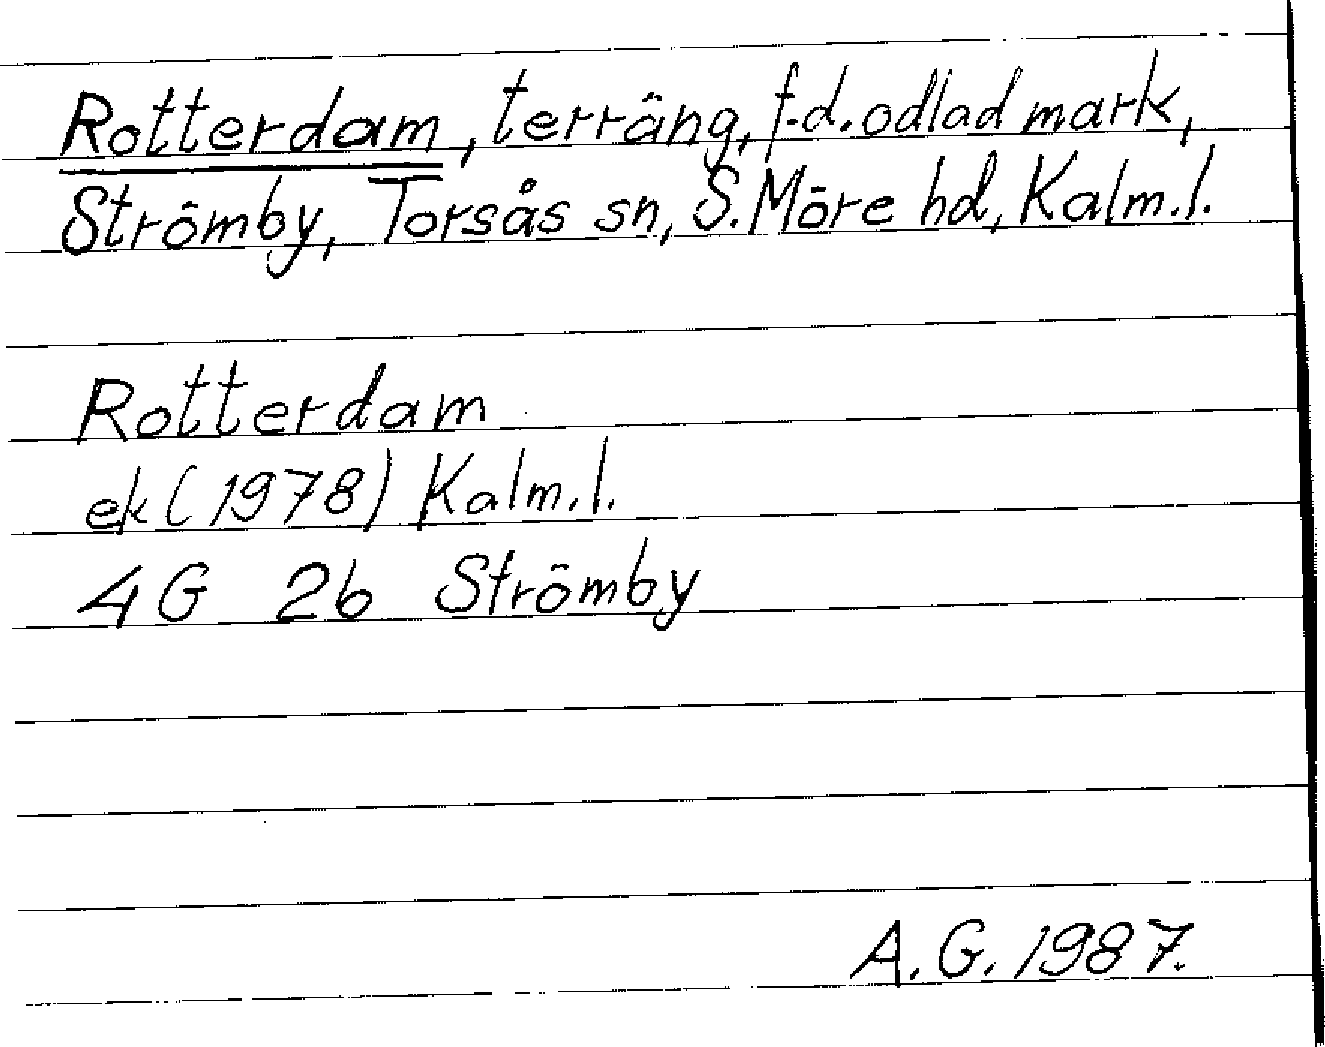 Rotterdam, terräng, f.d. odlad mark,
Strömby, Torsås sn, S. Möre hd, Kalm.l.
Rotterdam
ek (1978) Kalm.l.
4G 2b Strömby
A.G. 1987.